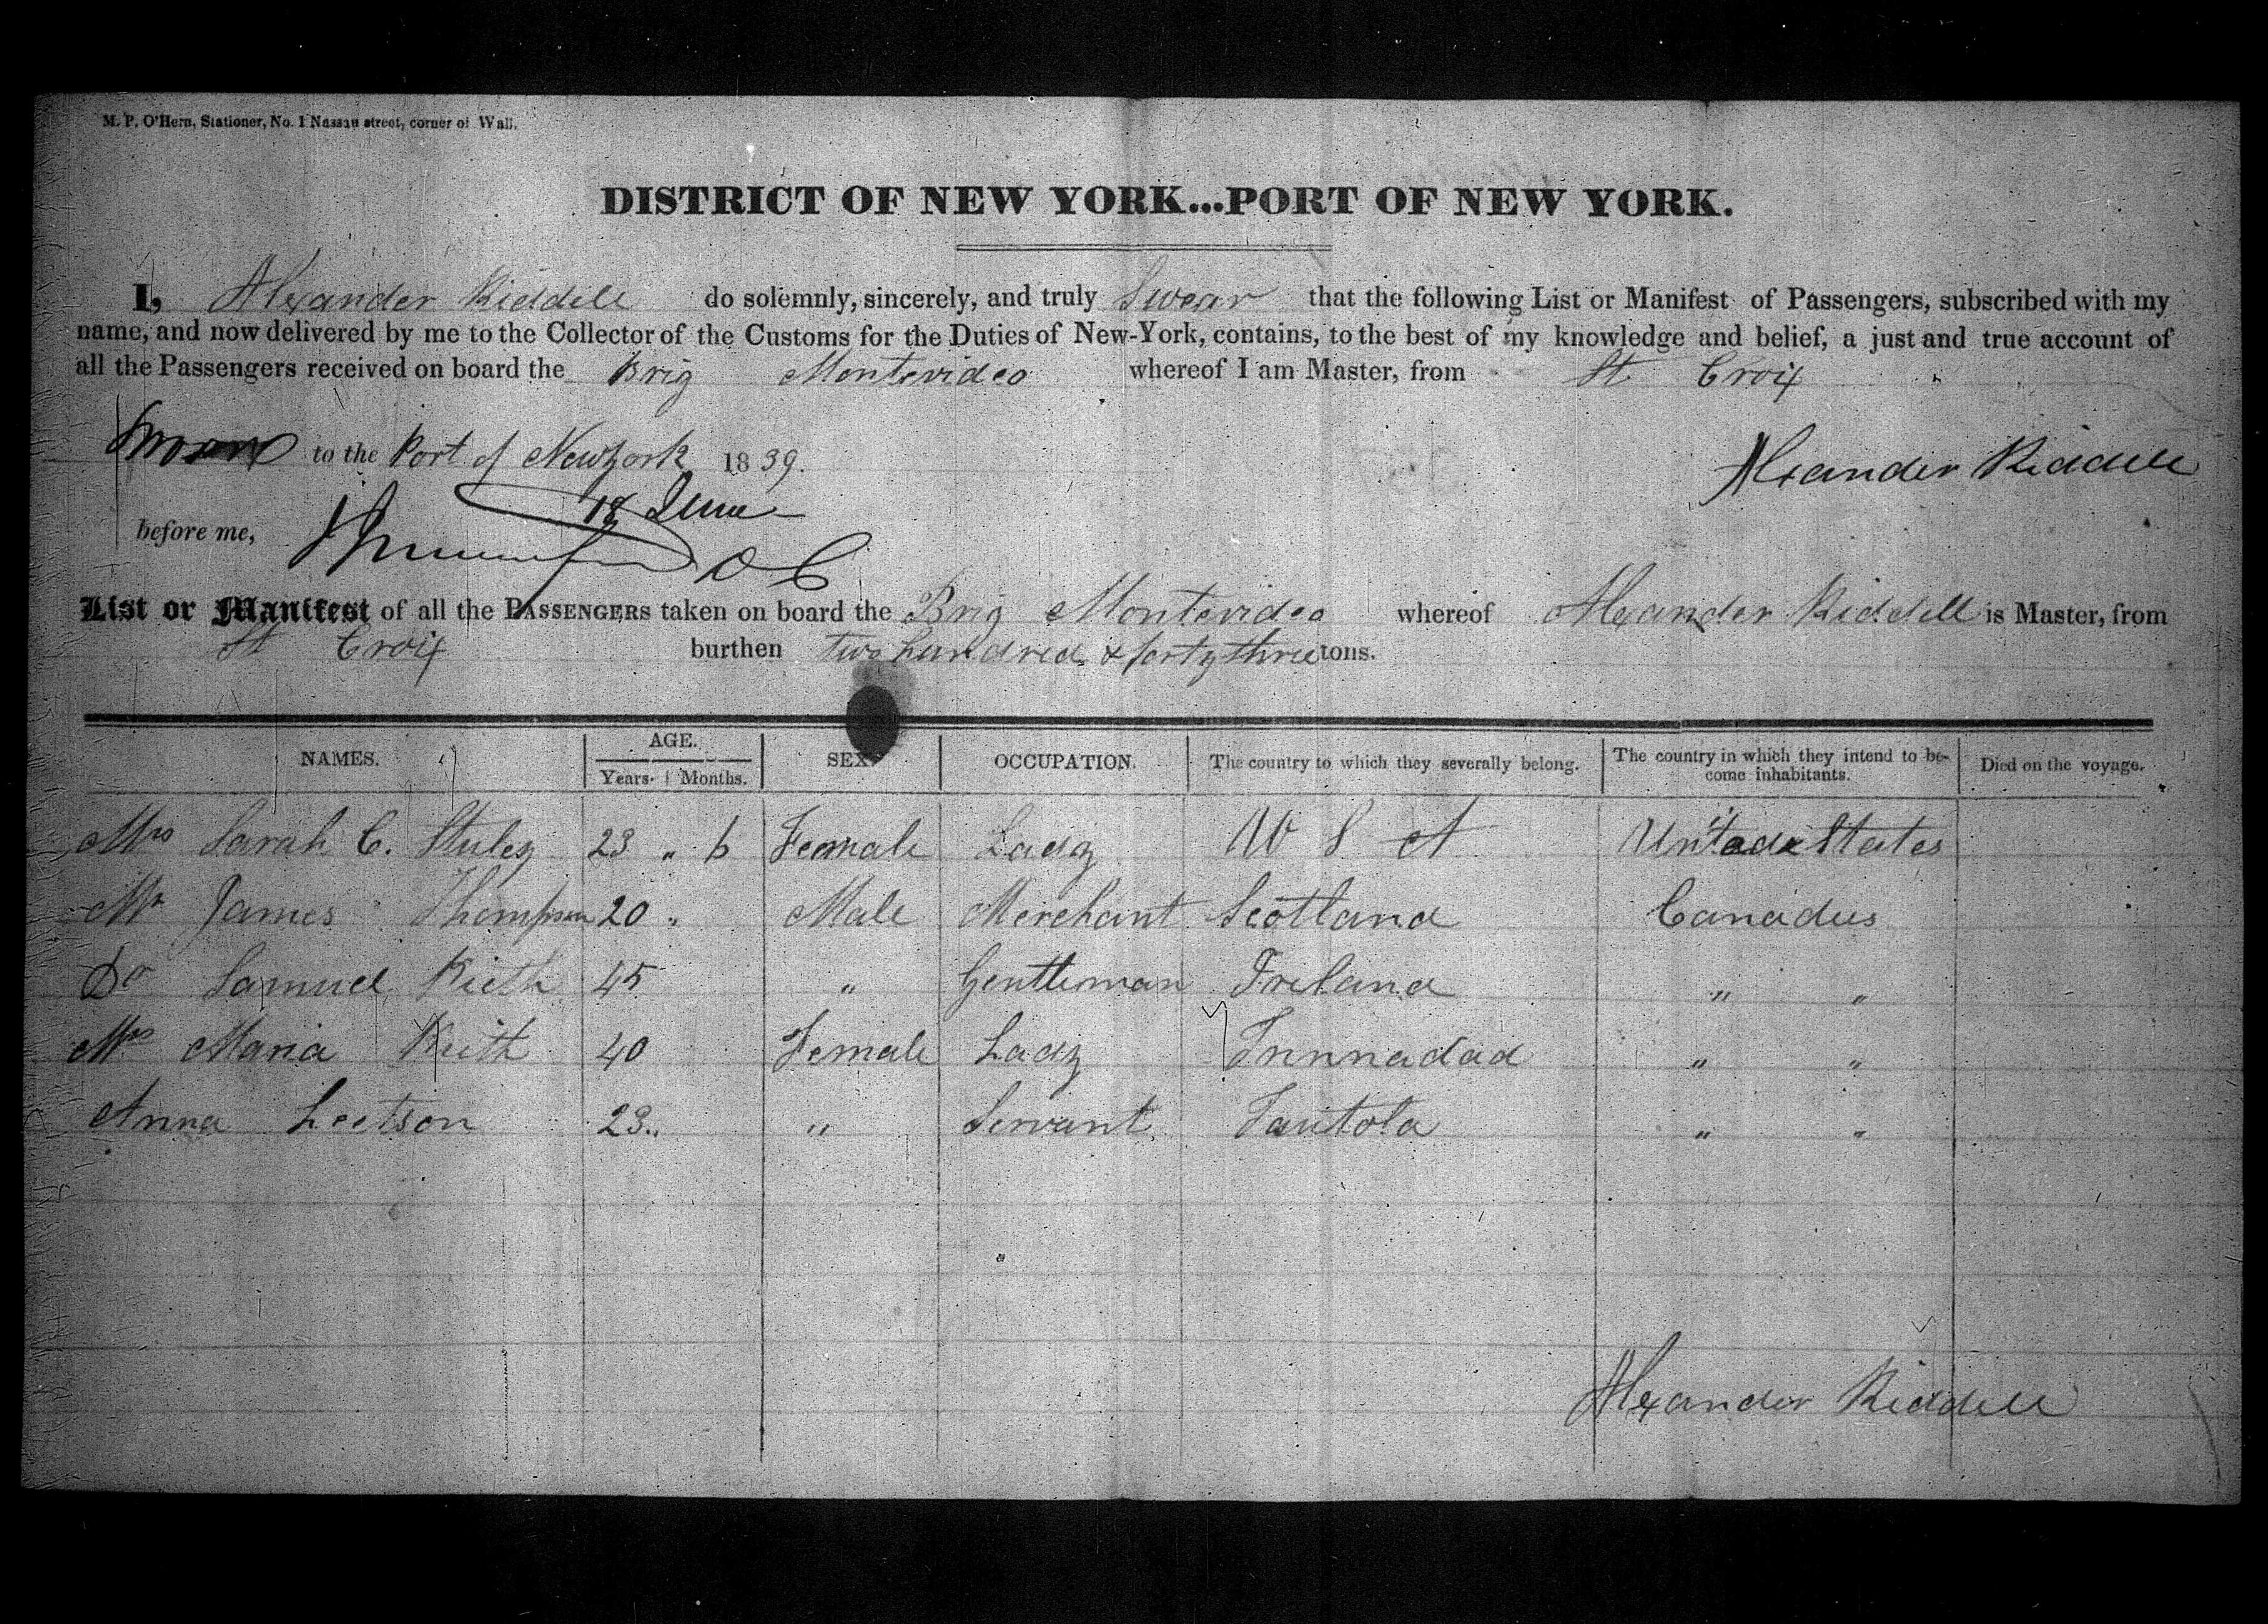 M. P. O'Hern, Stationer, No. 1 Nassau street, corner of Wall.
DISTRICT OF NEW YORK...PORT OF NEW YORK.
I, Alexander Riddell do solemnly, sincerely, and truly Swear that the following List or Manifest of Passengers, subscribed with my
name, and now delivered by me to the Collector of the Customs for the Duties of New-York, contains, to the best of my knowledge and belief, a just and true account of
all the Passengers received on board the Brig Montevideo whereof I am Master, from St Croix
Sworn to the Port of New York 1839. Alexander Riddell
18 June
before me,
List or Manifest of all the PASSENGERS taken on board the Brig Montevideo whereof Alexander Riddell is Master, from
St Croix burthen two hundred & forty three tons.
NAMES. AGE. Years. Months. SEX. OCCUPATION. The country to which they severally belong. The country in which they intend to become inhabitants. Died on the voyage.
Mrs Sarah C. 23 " 6 Female Lady United States
Mr James Thompson 20 " Male Merchant Scotland Canadas
Do Samuel Kieth 45 " Gentleman Ireland " "
Mrs Maria Kieth 40 Female Lady Trinnadad " "
Anna Leetson 23 " " Servant Tautola " "
Alexander Riddell